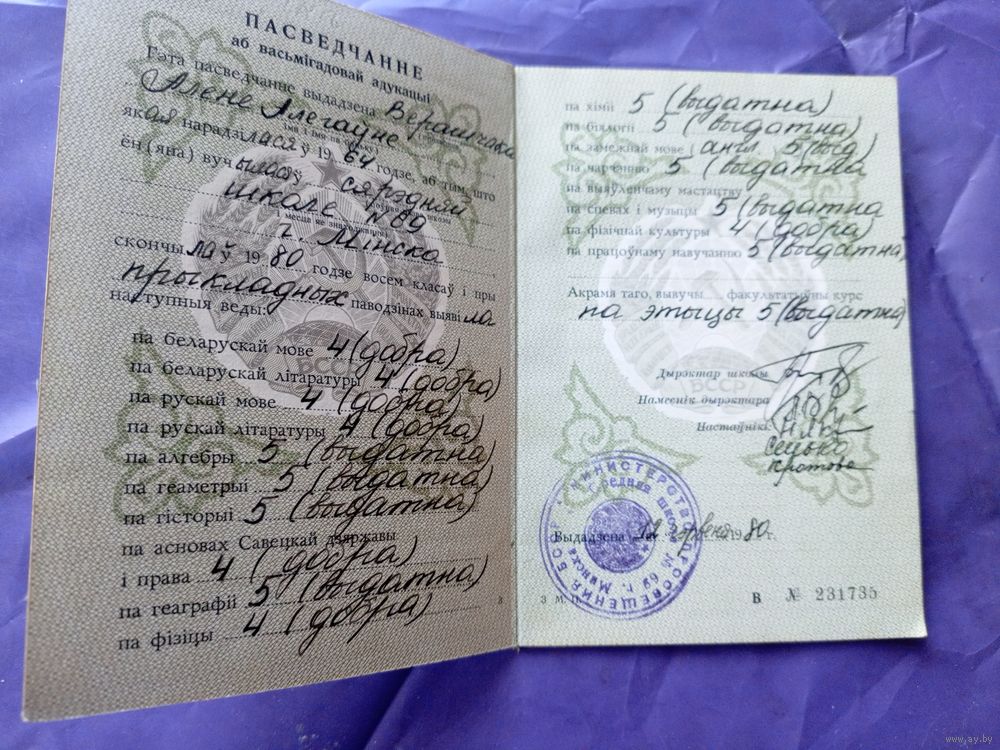 ПАСВЕДЧАННЕ
аб васьмігадовай адукацыі
Гэта пасведчанне выдадзена
Алене Алегаўне
якая нарадзілася ў 1964 годзе, аб тым, што
ён(яна) вучылася ў сярэдняй
школе №89
г. Мінска
скончыла ў 1980 годзе восем класаў і пры
прыкладных паводзінах выявіла
наступныя веды:
па беларускай мове 4 (добра)
па беларускай літаратуры 4 (добра)
па рускай мове 4 (добра)
па рускай літаратуры 4 (добра)
па алгебры 5 (выдатна)
па геаметрыі 5 (выдатна)
па гісторыі 5 (выдатна)
па асновах Савецкай дзяржавы
і права 4 (добра)
па геаграфіі 5 (выдатна)
па фізіцы 4 (добра)
БССР
па хіміі 5 (выдатна)
па біялогіі 5 (выдатна)
па замежнай мове (англ. 5 (выд)
па чарчэнню 5 (выдатна
па выяўленчаму мастацтву
па спевах і музыцы 5 (выдатна
па фізічнай культуры 4 (добра)
па працоўнаму навучанню 5 (выдатна)
Акрамя таго, вывучы факультатыўны курс
па этыцы 5 (выдатна)
БССР
Дырэктар школы
Намеснік дырэктара
Настаўнікі:
Сецько
Кротова
Выдадзена 12 чэрвеня 1980 г.
МИНИСТЕРСТВО ПРОСВЕЩЕНИЯ БССР
Средняя школа
г. Минска
В № 231735
www.ay.by